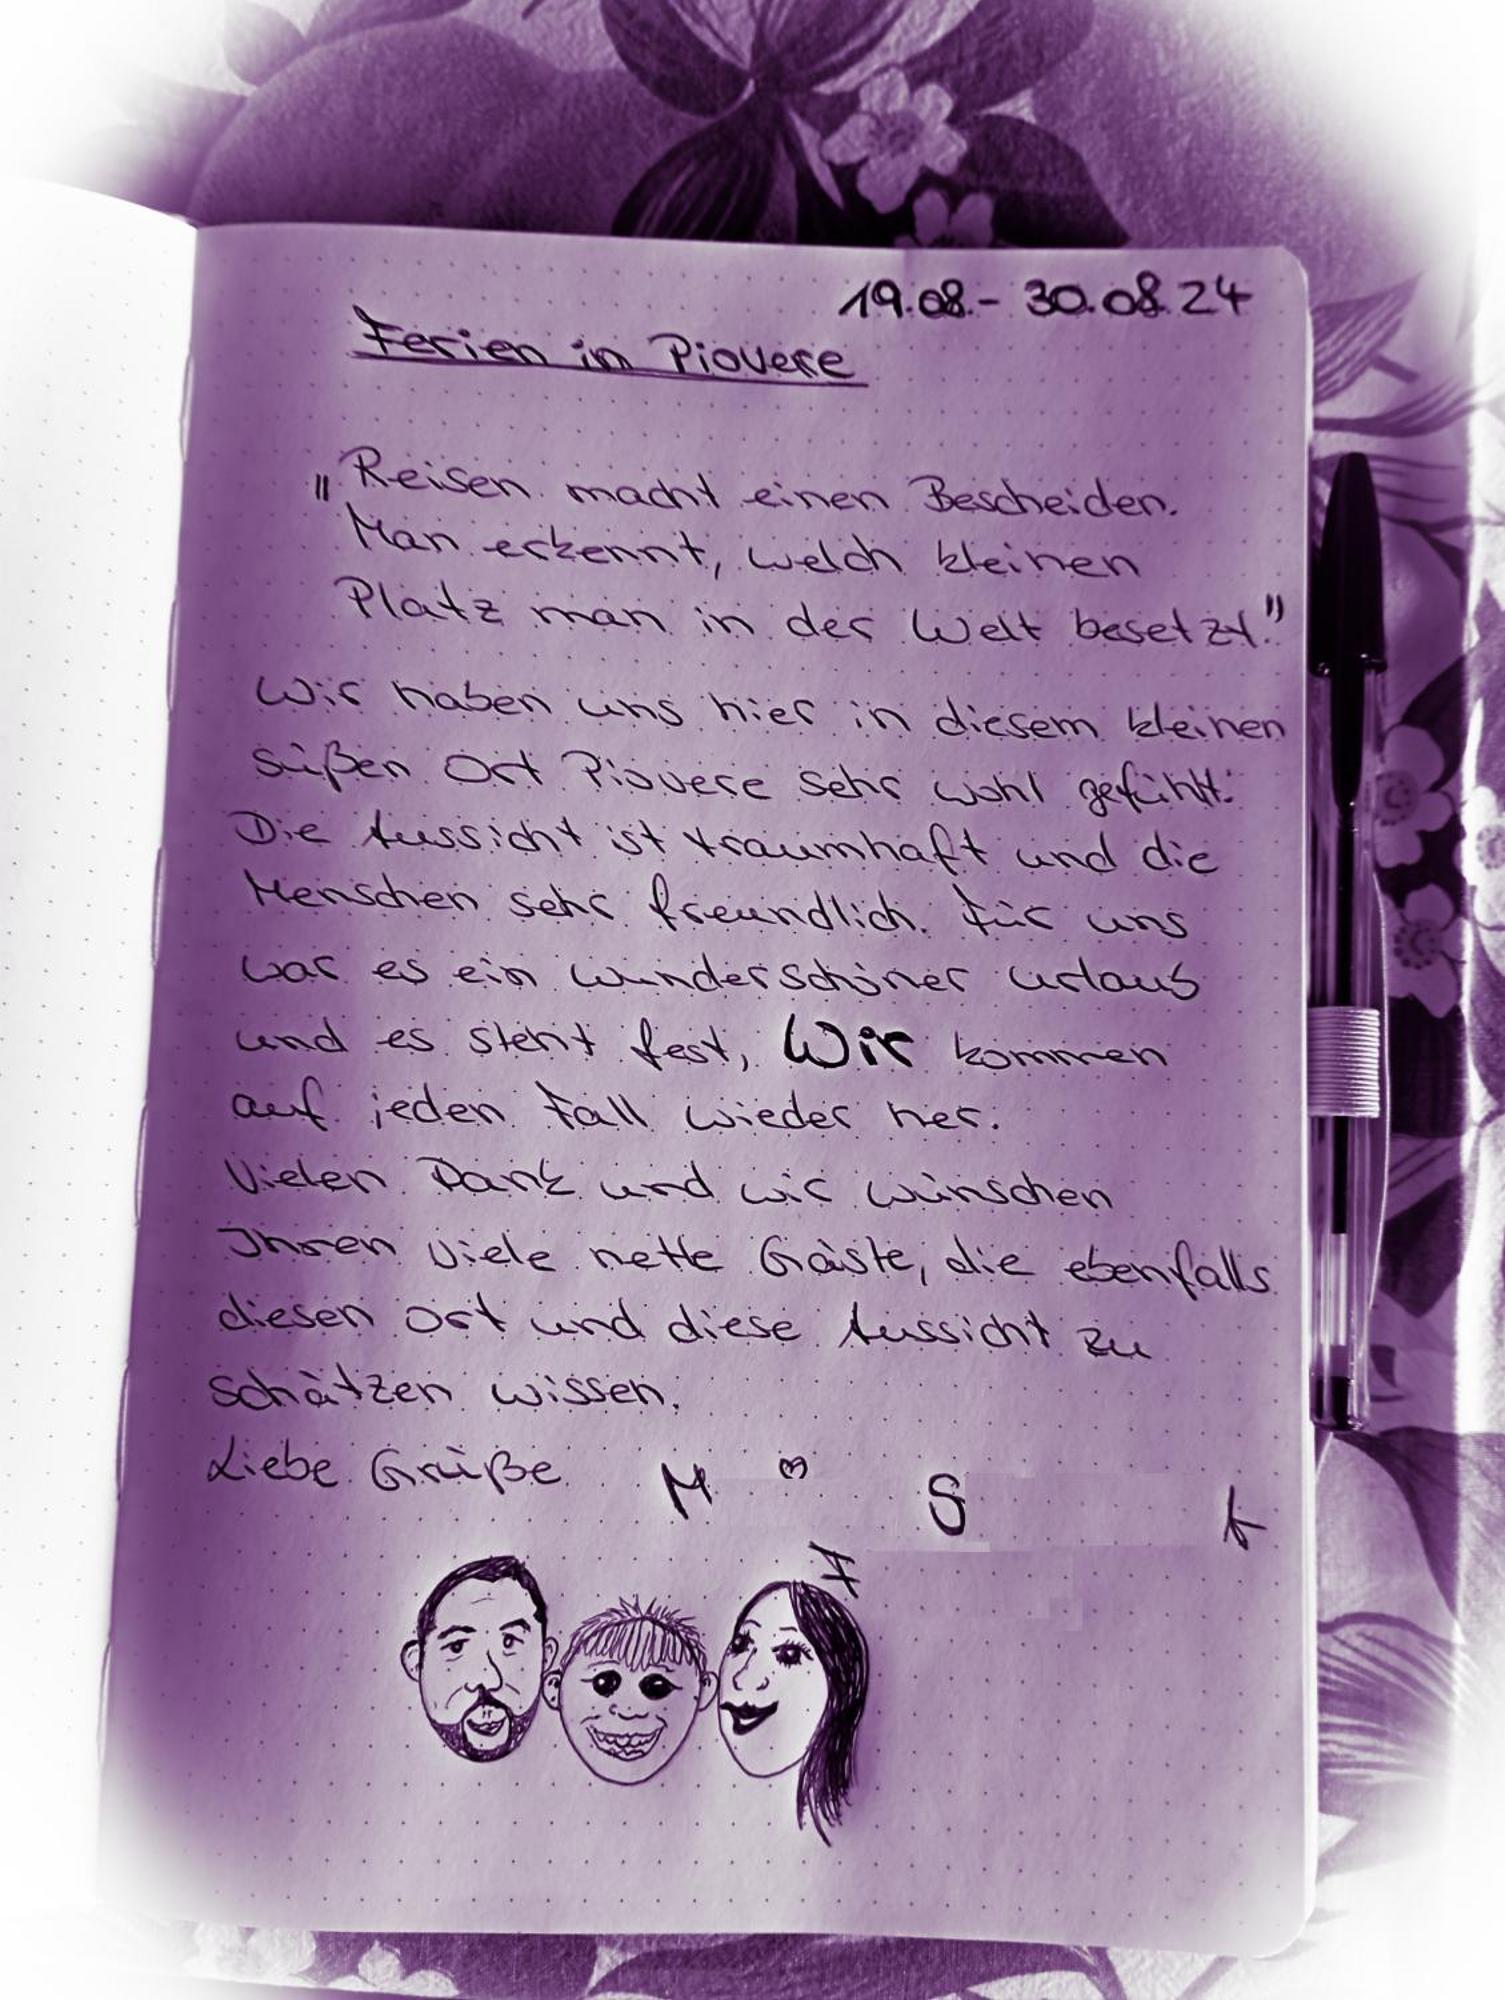 19.08.- 30.08.24
Ferien in Piovere
„Reisen macht einen Bescheiden.
Man erkennt, welch kleinen
Platz man in der Welt besetzt."
Wir haben uns hier in diesem kleinen
süßen Ort Piovere sehr wohl gefühlt.
Die Aussicht ist traumhaft und die
Menschen sehr freundlich. Für uns
war es ein wunderschöner Urlaub
und es steht fest, Wir kommen
auf jeden Fall wieder her.
Vielen Dank und wir wünschen
Ihnen viele nette Gäste, die ebenfalls
diesen Ort und diese Aussicht zu
schätzen wissen.
Liebe Grüße M S A
F